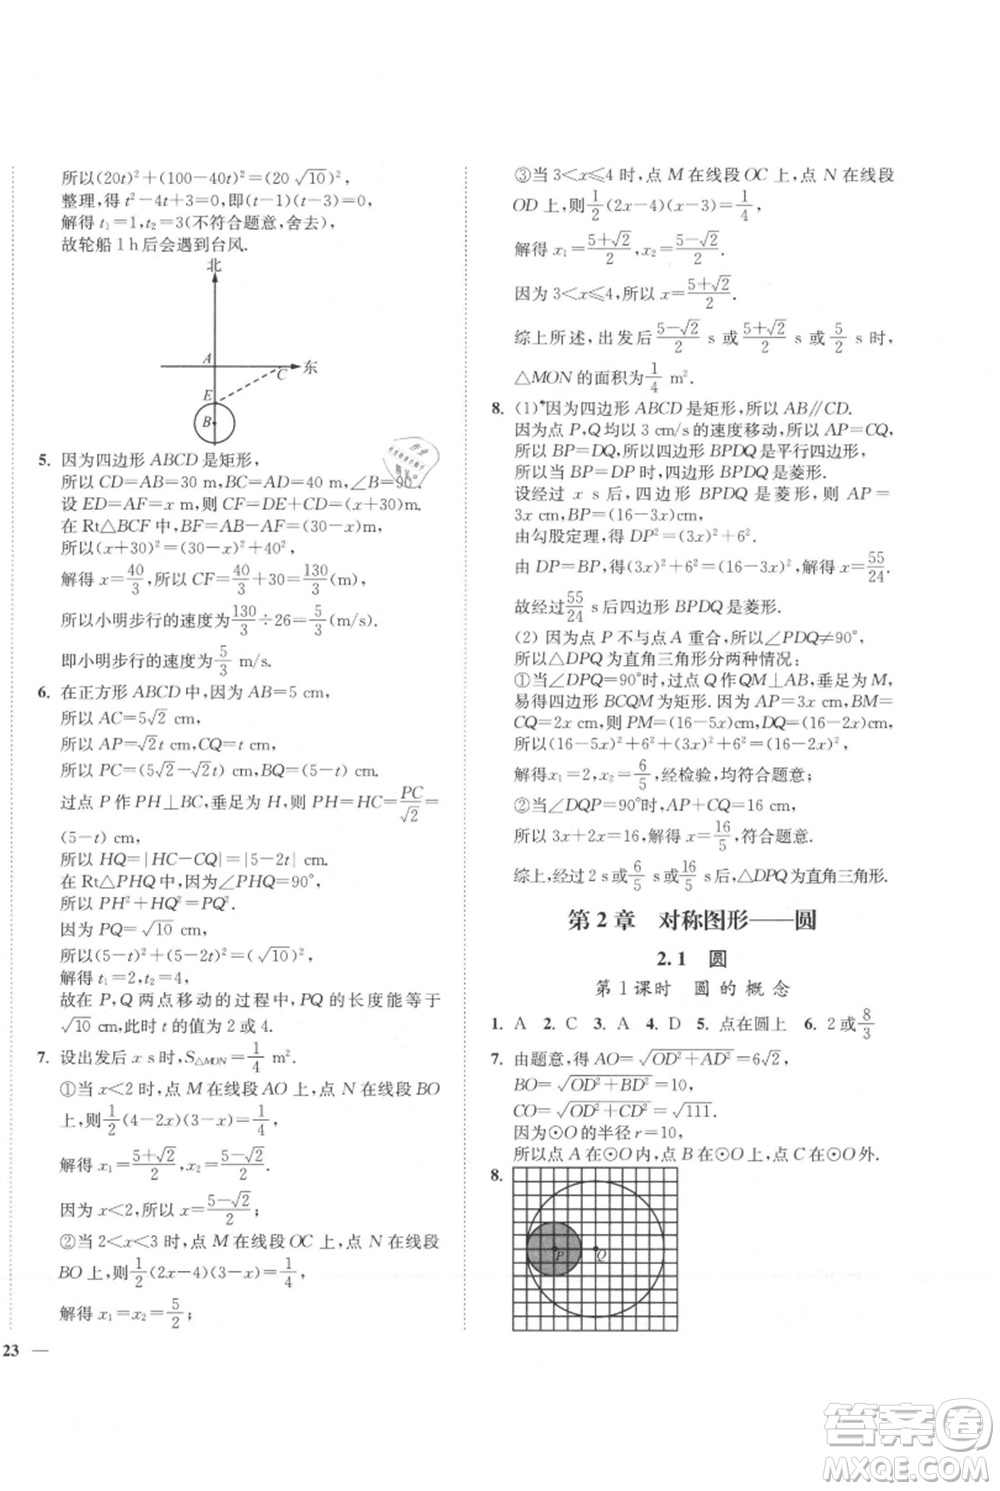 所以(20t)²+(100-40t)²=(20√10)²,
整理,得 t²-4t+3=0,即(t-1)(t-3)=0,
解得 t₁=1,t₂=3(不符合题意,舍去),
故轮船 1 h后会遇到台风.
北
A
C
东
E
B
5. 因为四边形 ABCD 是矩形,
所以 CD=AB=30 m,BC=AD=40 m,∠B=90°.
设 ED=AF=x m,则 CF=DE+CD=(x+30)m.
在 Rt△BCF 中,BF=AB-AF=(30-x)m,
所以(x+30)²=(30-x)²+40²,
解得 x=40/3,所以 CF=40/3+30=130/3(m).
所以小明步行的速度为130/3÷26=5/3(m/s),
即小明步行的速度为5/3 m/s.
6. 在正方形 ABCD 中,因为 AB=5 cm,
所以 AC=5√2 cm,
所以 AP=√2t cm,CQ=t cm,
所以 PC=(5√2-√2t)cm,BQ=(5-t)cm.
过点 P 作 PH⊥BC,垂足为 H,则 PH=HC=PC/√2=
(5-t) cm,
所以 HQ=|HC-CQ|=|5-2t| cm.
在 Rt△PHQ 中,因为∠PHQ=90°,
所以 PH²+HQ²=PQ².
因为 PQ=√10 cm,
所以(5-t)²+(5-2t)²=(√10)²,
解得 t₁=2,t₂=4,
故在 P,Q 两点移动的过程中,PQ 的长度能等于
√10 cm,此时 t 的值为 2 或 4.
7. 设出发后 x s时,S△MON=1/4 m².
①当 x<2 时,点 M 在线段 AO 上,点 N 在线段 BO
上,则1/2(4-2x)(3-x)=1/4,
解得 x₁=(5-√2)/2,x₂=(5+√2)/2.
因为 x<2,所以 x=(5-√2)/2;
②当 2<x<3 时,点 M 在线段 OC 上,点 N 在线段
BO 上,则1/2(2x-4)(3-x)=1/4,
解得 x₁=x₂=5/2;
23
③当 3<x≤4 时,点 M 在线段 OC 上,点 N 在线段
OD 上,则1/2(2x-4)(x-3)=1/4,
解得 x₁=(5+√2)/2,x₂=(5-√2)/2.
因为 3<x≤4,所以 x=(5+√2)/2.
综上所述,出发后(5-√2)/2 s 或(5+√2)/2 s 或5/2 s 时,
△MON 的面积为1/4 m².
8. (1) 因为四边形 ABCD 是矩形,所以 AB∥CD.
因为点 P,Q 均以 3 cm/s的速度移动,所以 AP=CQ,
所以 BP=DQ,所以四边形 BPDQ 是平行四边形,
所以当 BP=DP 时,四边形 BPDQ 是菱形.
设经过 x s后,四边形 BPDQ 是菱形,则 AP=
3x cm,BP=(16-3x)cm.
由勾股定理,得 DP²=(3x)²+6²,
由 DP=BP,得(3x)²+6²=(16-3x)²,解得 x=55/24.
故经过55/24 s后四边形 BPDQ是菱形.
(2) 因为点 P 不与点 A 重合,所以∠PDQ≠90°,
所以△DPQ为直角三角形分两种情况:
①当∠DPQ=90°时,过点 Q 作QM⊥AB,垂足为 M,
易得四边形 BCQM 为矩形,所以 AP=3x cm,BM=
CQ=2x cm,则 PM=(16-5x)cm,DQ=(16-2x)cm,
所以(16-2x)²=(3x)²+6²+(16-5x)²+6²,
解得 x₁=2,x₂=6/5,经检验,均符合题意;
②当∠DQP=90°时,AP+CQ=16 cm,
所以 3x+2x=16,解得 x=16/5,符合题意.
综上,经过 2 s或6/5 s或16/5 s,△DPQ为直角三角形.
第 2 章 对称图形——圆
2.1 圆
第 1 课时 圆 的 概 念
1. A 2. C 3. A 4. D 5. 点在圆上 6. 2 或8/3
7. 由题意,得 AO=√(OD²+AD²)=6√2,
BO=√(OD²+BD²)=10,
CO=√(OD²+CD²)=√111.
因为⊙O的半径 r=10,
所以点 A 在⊙O内,点 B 在⊙O上,点 C 在⊙O外.
8.
P
Q
答案圈
MXQE.COM